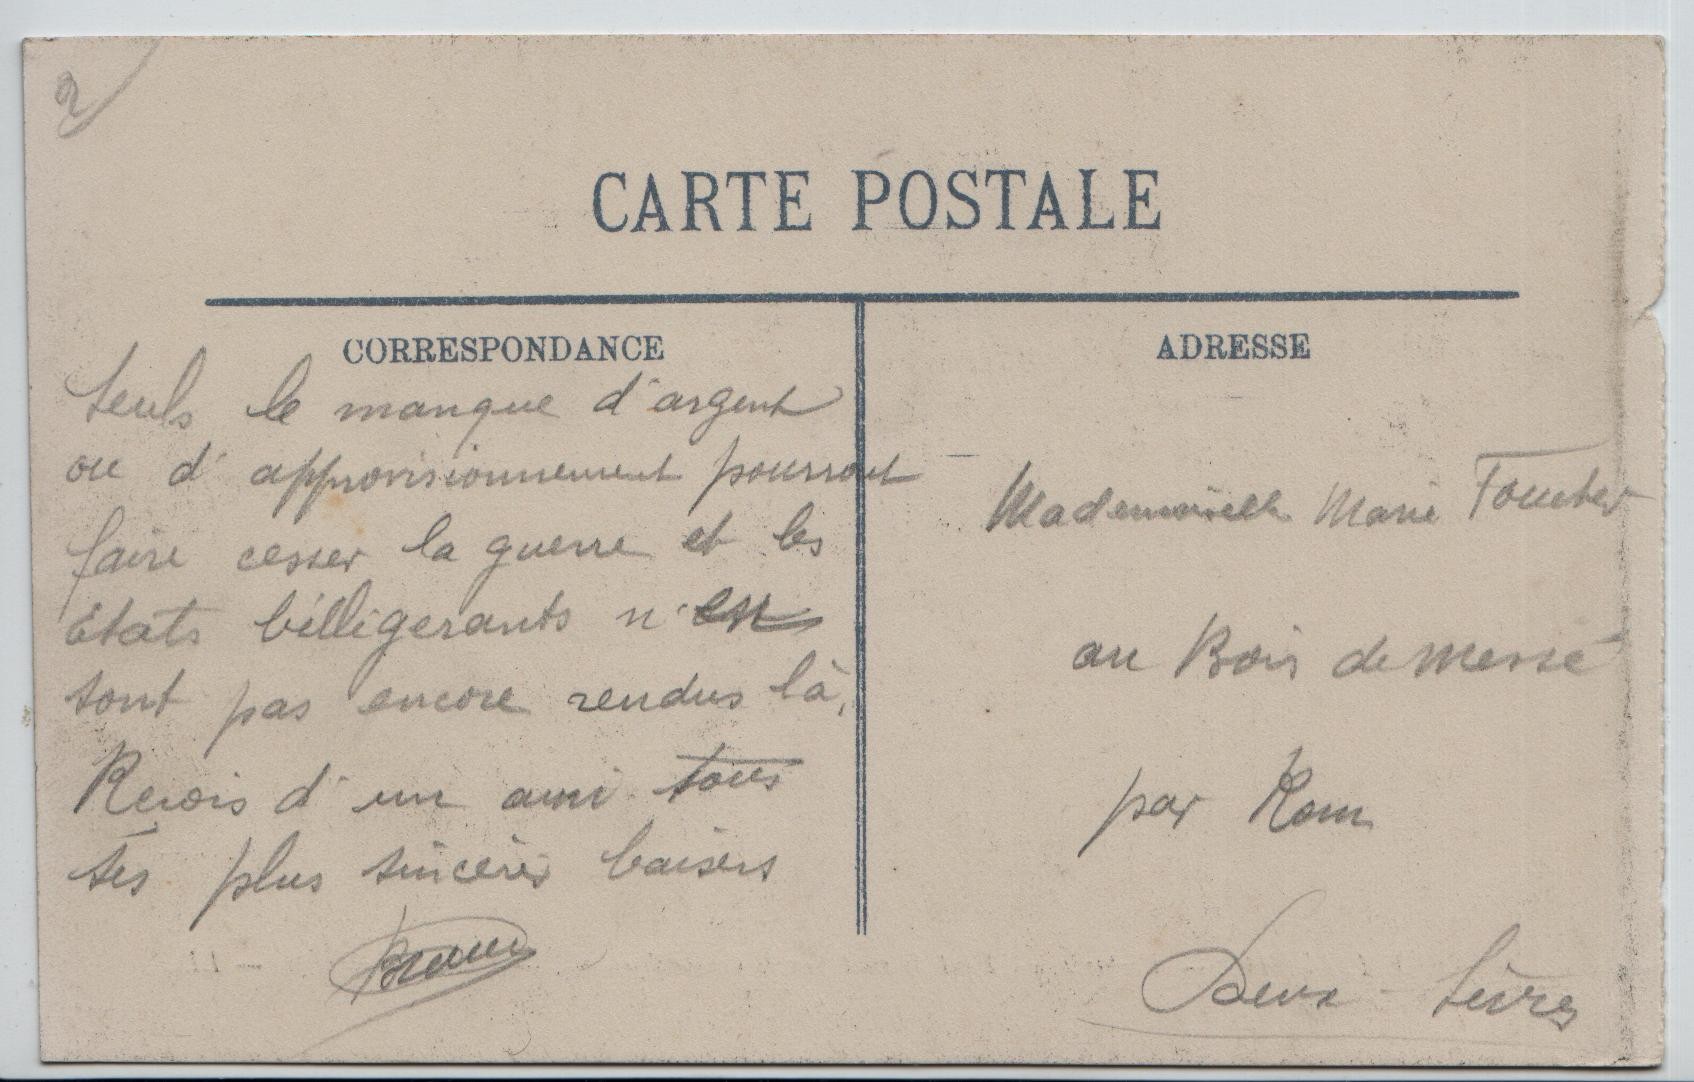 2
CARTE POSTALE
CORRESPONDANCE
Seuls le manque d'argent
ou d'approvisionnement pourront
faire cesser la guerre et les
Etats bélligerants n'en
sont pas encore rendus là,
Recois d'un ami tous
ses plus sincères baisers
ADRESSE
Mademoiselle Marie Foucher
au Bois de Messé
par Rom
Deux-Sèvres